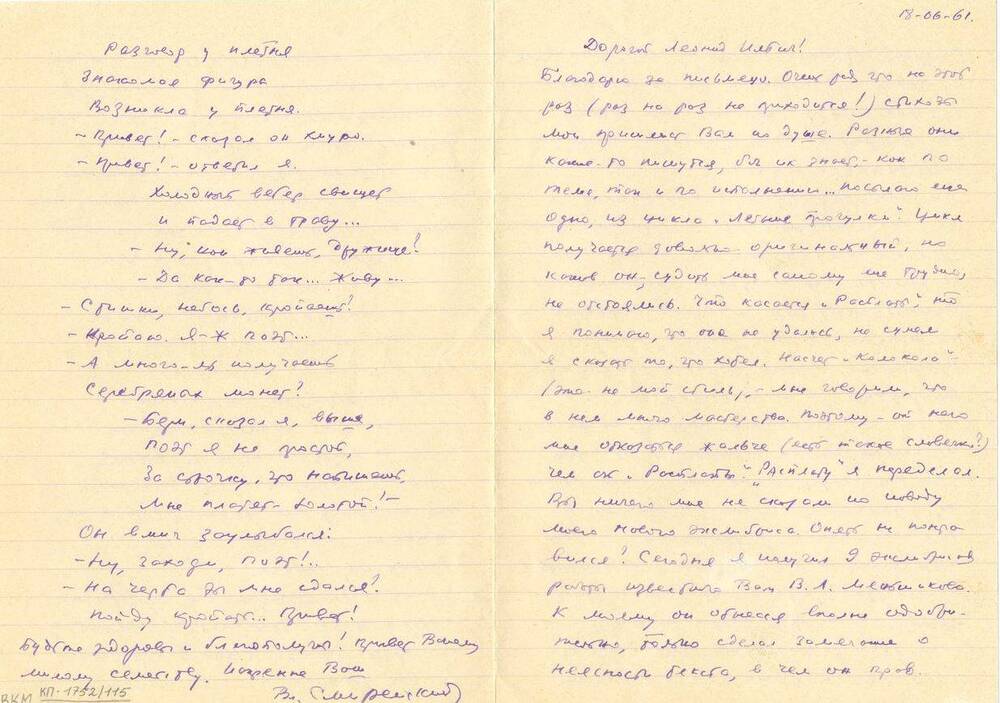 18-06-61.
Дорогой Леонид Ильич!
Благодарю за письмецо. Очень рад что на этот
раз (раз на раз не приходится!) стихозы
мои пришлись Вам по душе. Разные они
какие-то пишутся, бес их знает, - как по
теме, так и по исполнению... Посылаю еще
одно, из цикла "Летние прогулки". Цикл
получается довольно оригинальный, но
каков он, судить мне самому еще трудно,
не отстоялись. Что касается "Расплаты", то
я понимаю, что она не удалась, не сумел
я сказать то, что хотел. Насчет "Колокола" -
(это не мой стиль), - мне говорили, что
в нем много мастерства. Поэтому - от него
мне отказаться жальче (есть такое словечко?)
чем от "Расплаты". "Расплату" я переделал.
Вы ничего мне не сказали по поводу
моего нового экслибриса. Опять не понра
вился? Сегодня я получил 9 экслибрисов
работы известного Вам В. А. Меньшикова.
К моему он отнесся вполне одобри-
тельно, только сделал замечание о
неясности текста, в чем он прав.
Разговор у плетня
Знакомая фигура
Возникла у плетня.
- Привет! - сказал он хмуро.
- Привет! - ответил я.
Холодный ветер свищет
и падает в траву...
- Ну, как живешь, дружище!
- Да как-то так... Живу...
- Стишки, небось, кропаешь?
- Кропаю. Я-ж поэт...
- А много-ль получаешь
Серебряных монет?
- Бери, сказал я, выше,
Поэт я не простой,
За строчку, что напишешь,
Мне платят - золотой! -
Он вмиг заулыбался:
- Ну, заходи, поэт!..
- На черта ты мне сдался!
Пойду кропать... Привет!
Будьте здоровы и благополучны! Привет Вашему
милому семейству. Искренне Ваш
Вл. Смиренский
ВКМ КП-1752/115